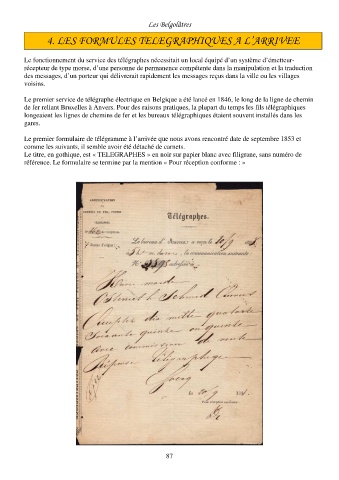 Les Belgolâtres
4. LES FORMULES TELEGRAPHIQUES A L’ARRIVEE
Le fonctionnement du service des télégraphes nécessitait un local équipé d’un système d’émetteur-
récepteur de type morse, d’une personne de permanence compétente dans la manipulation et la traduction
des messages, d’un porteur qui délivrerait rapidement les messages reçus dans la ville ou les villages
voisins.
Le premier service de télégraphe électrique en Belgique a été lancé en 1846, le long de la ligne de chemin
de fer reliant Bruxelles à Anvers. Pour des raisons pratiques, la plupart du temps les fils télégraphiques
longeaient les lignes de chemins de fer et les bureaux télégraphiques étaient souvent installés dans les
gares.
Le premier formulaire de télégramme à l’arrivée que nous avons rencontré date de septembre 1853 et
comme les suivants, il semble avoir été détaché de carnets.
Le titre, en gothique, est « TELEGRAPHES » en noir sur papier blanc avec filigrane, sans numéro de
référence. Le formulaire se termine par la mention « Pour réception conforme : »
ADMINISTRATION
Télégraphes.
Le bureau d'Anvers a reçu le
la communication suivante
Schmid
mille quatre
soixante quinze
avec commission
Réponse télégraphique
Pour réception conforme
87